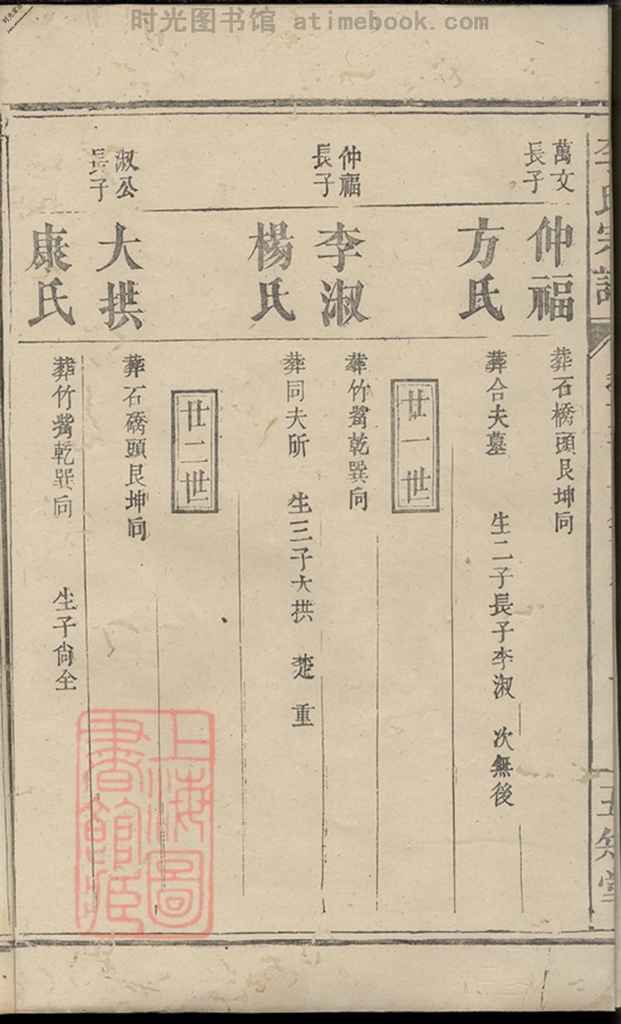 时光图书馆 atimebook.com
李氏宗譜
五知堂
萬文
長子
仲福
葬石橋頭艮坤向
方氏
葬合夫墓 生二子長子李淑 次無後
廿一世
仲福
長子
李淑
葬竹觜乾巽向
楊氏
葬同夫所 生三子大拱 楚 重
廿二世
淑公
長子
大拱
葬石礄頭艮坤向
康氏
葬竹觜乾巽向 生子尙全
上海圖
書館藏